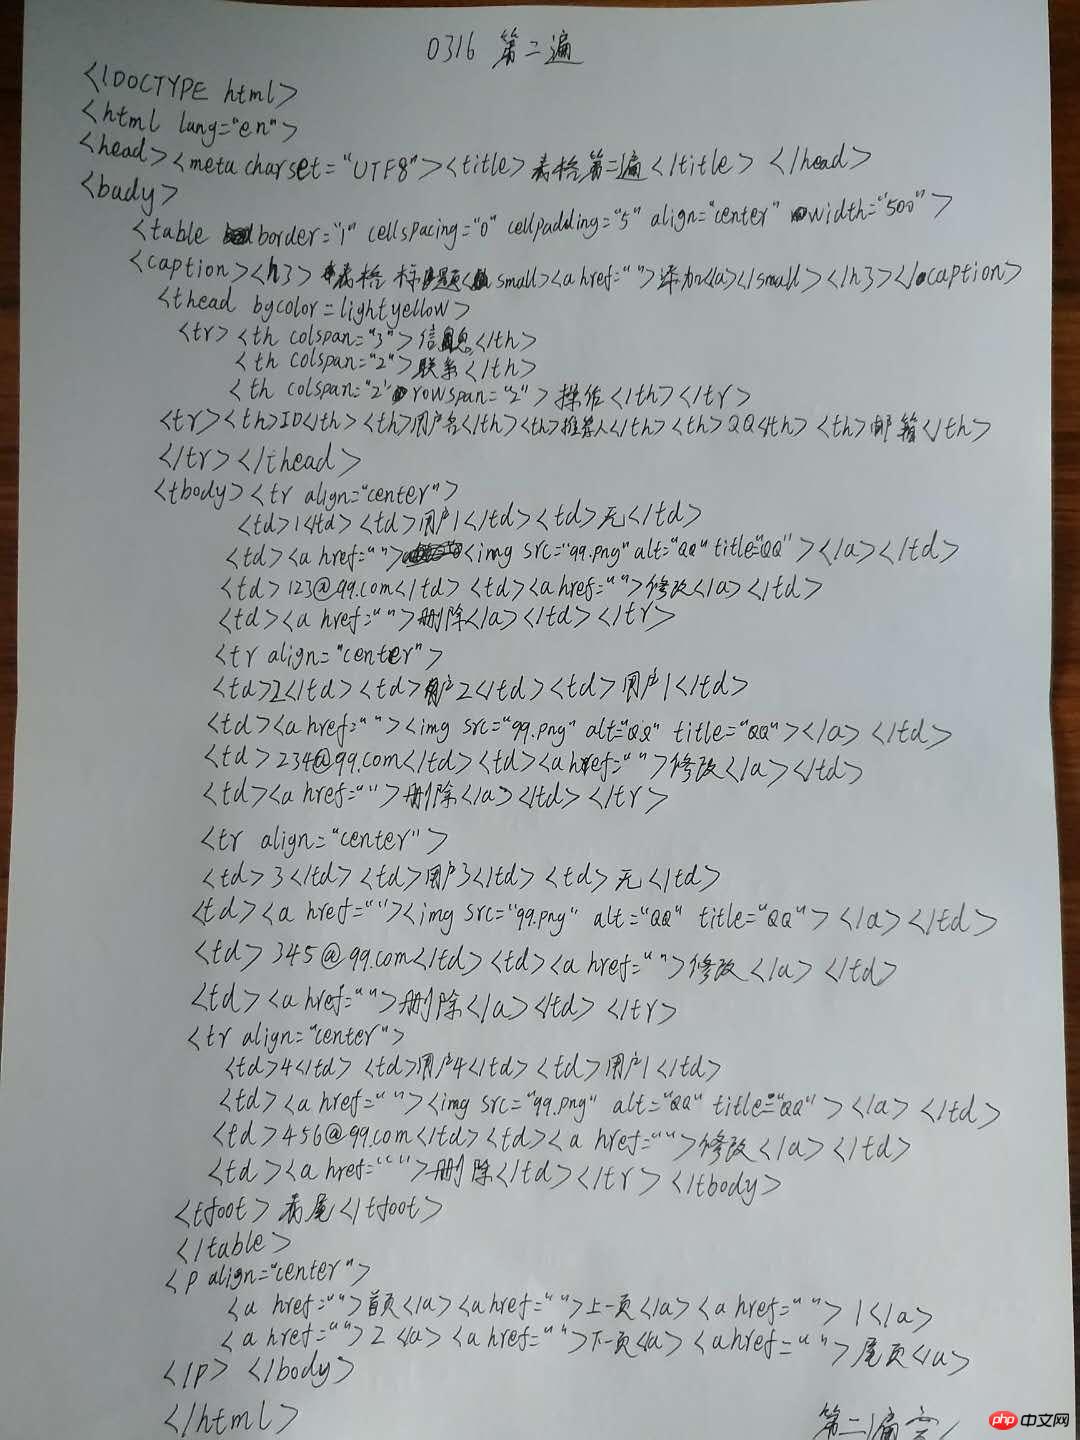 0316 第二遍
<!DOCTYPE html>
<html lang="en">
<head><meta charset="UTF8"><title>表格第二遍</title> </head>
<bady>
<table border="1" cellspacing="0" cellpadding="5" align="center" width="500">
<caption><h3>表格标题<small><a href="">添加</a></small></h3></caption>
<thead bgcolor=lightyellow>
<tr><th colspan="3">信息</th>
<th colspan="2">联系</th>
<th colspan="2" rowspan="2">操作</th></tr>
<tr><th>ID</th><th>用户名</th><th>推荐人</th><th>QQ</th><th>邮箱</th>
</tr></thead>
<tbody><tr align="center">
<td>1</td><td>用户1</td><td>无</td>
<td><a href=""><img src="qq.png" alt="QQ" title="QQ"></a></td>
<td>123@qq.com</td><td><a href="">修改</a></td>
<td><a href="">删除</a></td></tr>
<tr align="center">
<td>2</td><td>用户2</td><td>用户1</td>
<td><a href=""><img src="qq.png" alt="QQ" title="QQ"></a></td>
<td>234@qq.com</td><td><a href="">修改</a></td>
<td><a href="">删除</a></td></tr>
<tr align="center">
<td>3</td><td>用户3</td><td>无</td>
<td><a href=""><img src="qq.png" alt="QQ" title="QQ"></a></td>
<td>345@qq.com</td><td><a href="">修改</a></td>
<td><a href="">删除</a></td></tr>
<tr align="center">
<td>4</td><td>用户4</td><td>用户1</td>
<td><a href=""><img src="qq.png" alt="QQ" title="QQ"></a></td>
<td>456@qq.com</td><td><a href="">修改</a></td>
<td><a href="">删除</td></tr></tbody>
<tfoot>表尾</tfoot>
</table>
<p align="center">
<a href="">首页</a><a href="">上一页</a><a href="">1</a>
<a href="">2</a><a href="">下一页</a><a href="">尾页</a>
</p></body>
</html>
第二遍完
php中文网